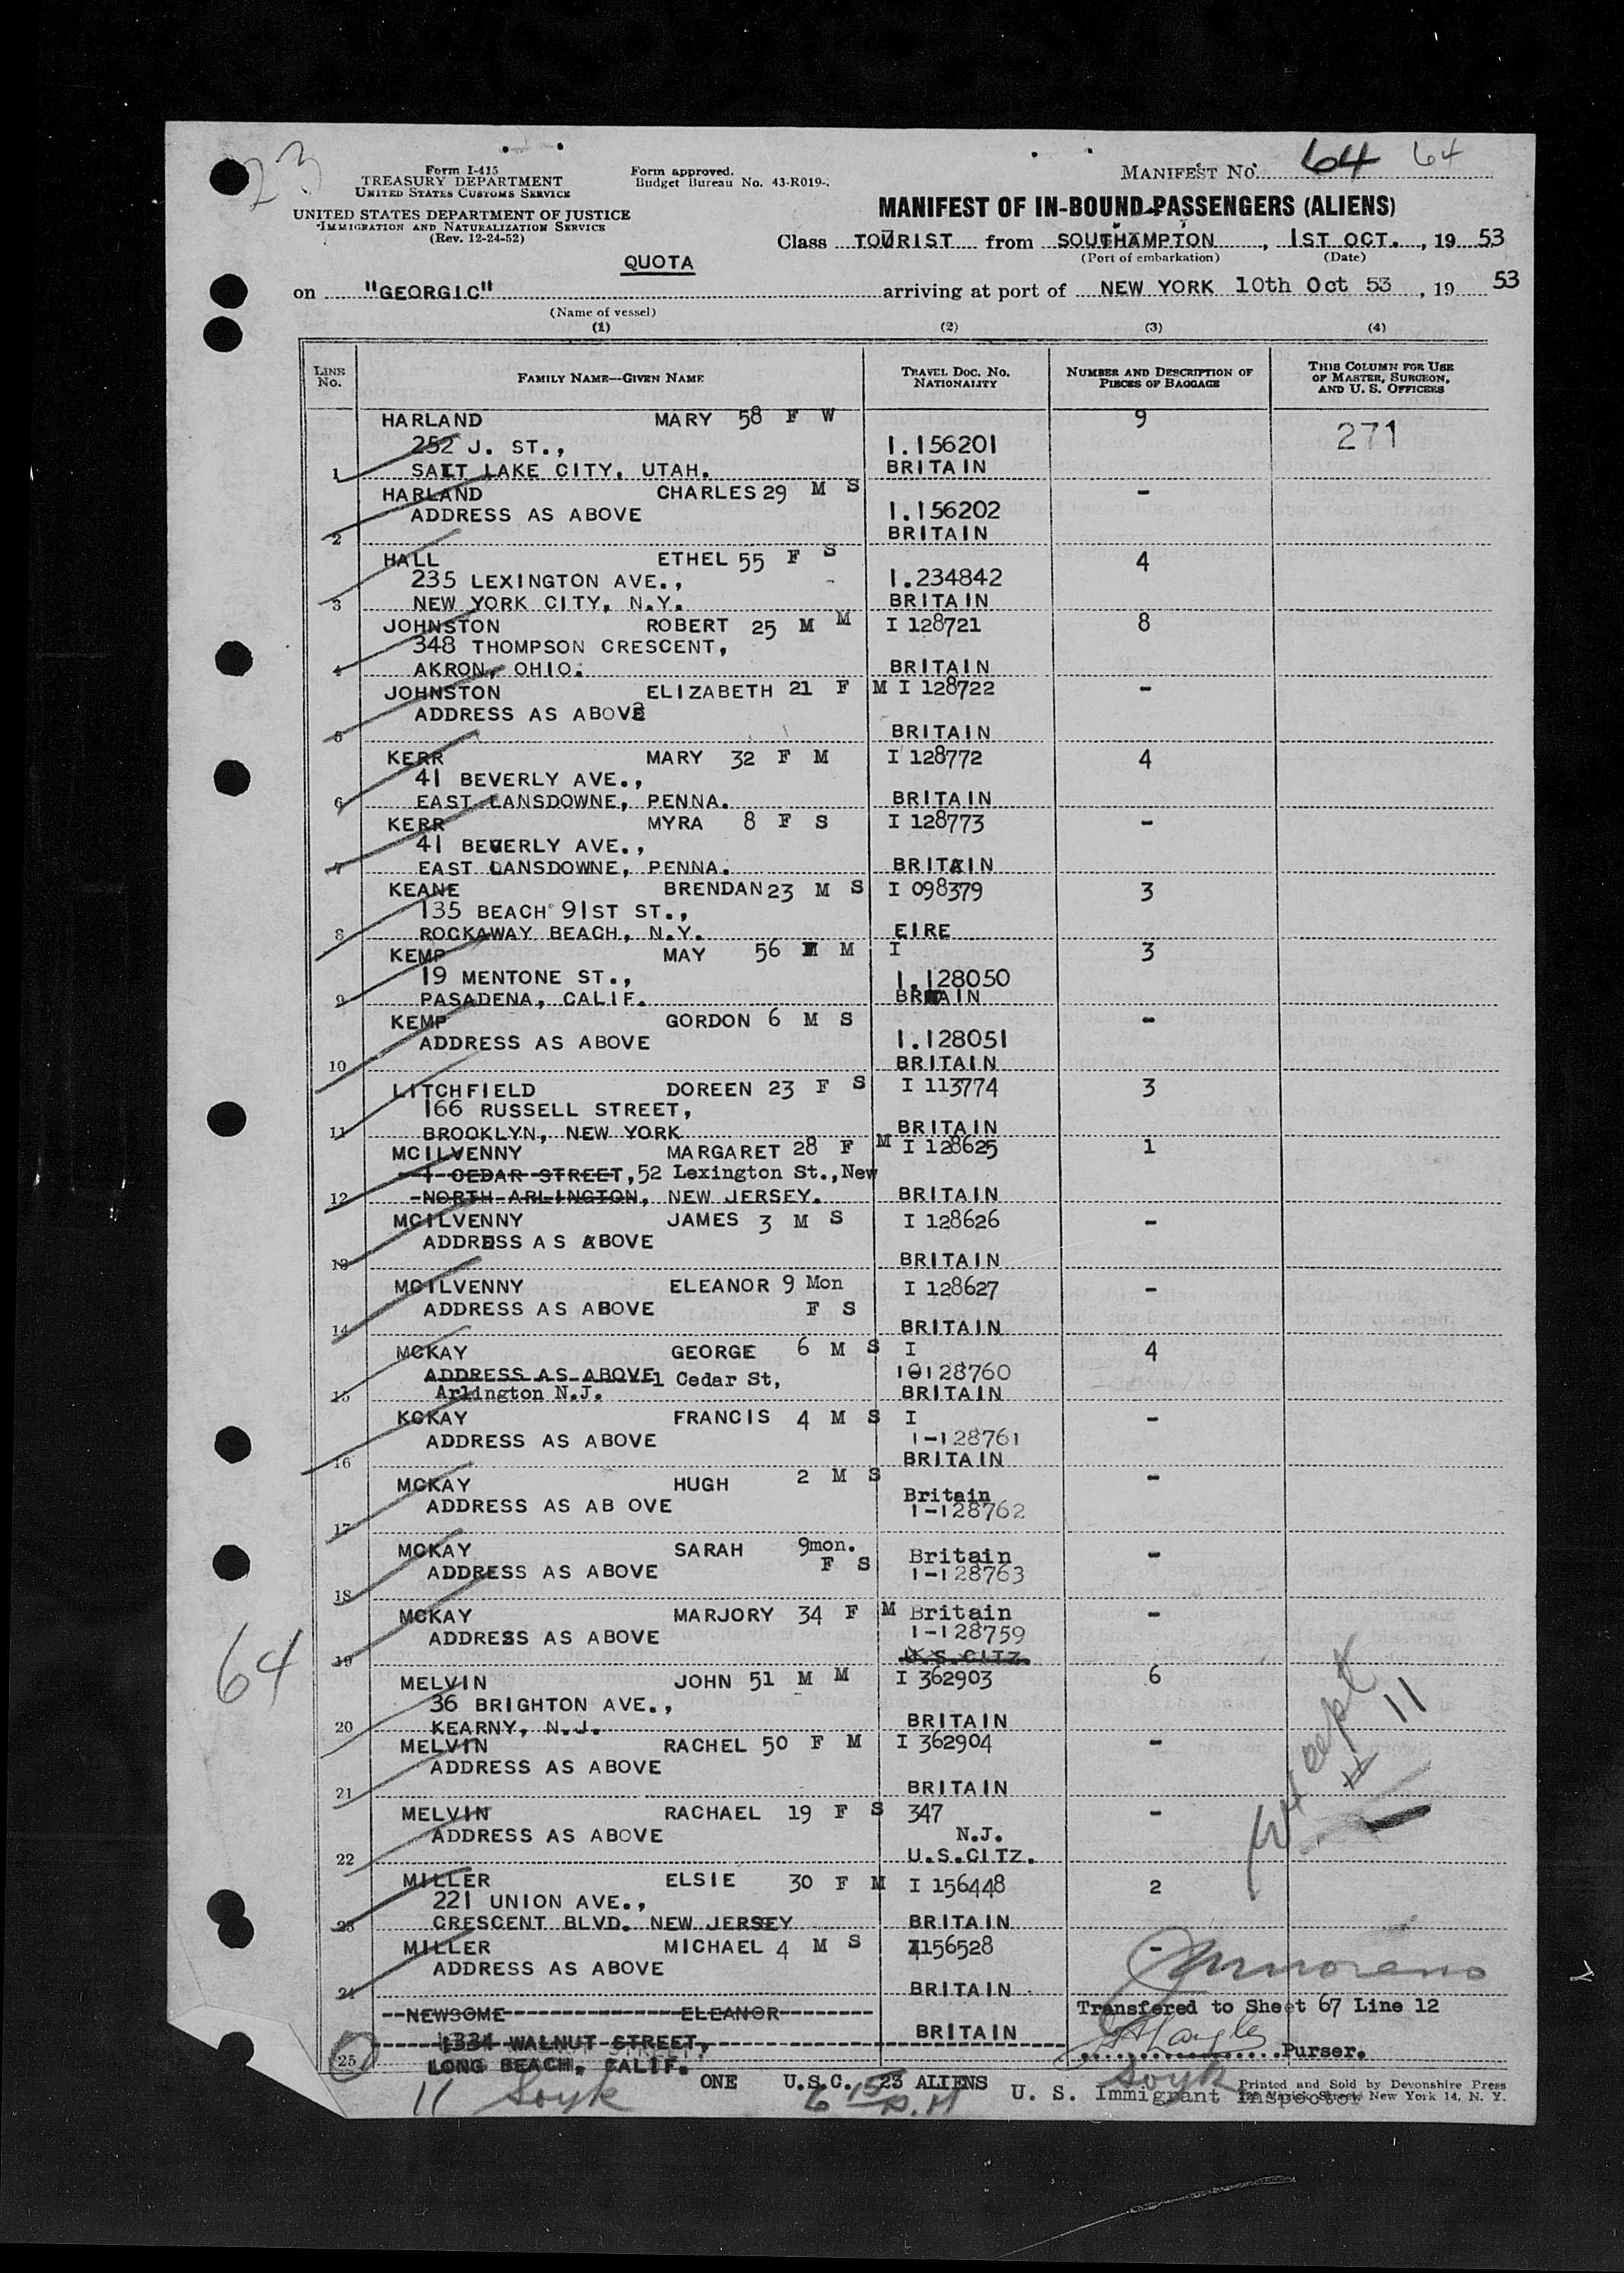 23
Form I-415
TREASURY DEPARTMENT
UNITED STATES CUSTOMS SERVICE
UNITED STATES DEPARTMENT OF JUSTICE
IMMIGRATION AND NATURALIZATION SERVICE
(Rev. 12-24-52)
Form approved.
Budget Bureau No. 43-R019-.
MANIFEST No. 64 64
MANIFEST OF IN-BOUND PASSENGERS (ALIENS)
Class TOURIST from SOUTHAMPTON, 1ST OCT., 19 53
(Port of embarkation) (Date)
QUOTA
on "GEORGIC" arriving at port of NEW YORK 10th Oct 53, 19 53
(Name of vessel)
(1) (2) (3) (4)
LINE No. FAMILY NAME—GIVEN NAME TRAVEL DOC. No. NATIONALITY NUMBER AND DESCRIPTION OF PIECES OF BAGGAGE THIS COLUMN FOR USE OF MASTER, SURGEON, AND U. S. OFFICERS
HARLAND MARY 58 F W 9
252 J. ST., 1.156201 271
1 SALT LAKE CITY, UTAH. BRITAIN
HARLAND CHARLES 29 M S -
ADDRESS AS ABOVE 1.156202
2 BRITAIN
HALL ETHEL 55 F S 4
235 LEXINGTON AVE., 1.234842
3 NEW YORK CITY, N.Y. BRITAIN
JOHNSTON ROBERT 25 M M I 128721 8
348 THOMPSON CRESCENT,
4 AKRON, OHIO. BRITAIN
JOHNSTON ELIZABETH 21 F M I 128722 -
ADDRESS AS ABOVE
5 BRITAIN
KERR MARY 32 F M I 128772 4
41 BEVERLY AVE.,
6 EAST LANSDOWNE, PENNA. BRITAIN
KERR MYRA 8 F S I 128773 -
41 BEVERLY AVE.,
7 EAST LANSDOWNE, PENNA. BRITAIN
KEANE BRENDAN 23 M S I 098379 3
135 BEACH 91ST ST.,
8 ROCKAWAY BEACH, N.Y. EIRE
KEMP MAY 56 M I 3
19 MENTONE ST., 1.128050
9 PASADENA, CALIF. BRITAIN
KEMP GORDON 6 M S -
ADDRESS AS ABOVE 1.128051
10 BRITAIN
LITCHFIELD DOREEN 23 F S I 113774 3
166 RUSSELL STREET,
11 BROOKLYN, NEW YORK BRITAIN
MCILVENNY MARGARET 28 F M I 128625 1
1 CEDAR STREET, 52 Lexington St., New
12 NORTH ARLINGTON, NEW JERSEY. BRITAIN
MCILVENNY JAMES 3 M S I 128626 -
ADDRESS A S ABOVE
13 BRITAIN
MCILVENNY ELEANOR 9 Mon I 128627 -
ADDRESS AS ABOVE F S
14 BRITAIN
MCKAY GEORGE 6 M S I 4
ADDRESS AS ABOVE 1 Cedar St, 10128760
15 Arlington N.J. BRITAIN
KCKAY FRANCIS 4 M S I -
ADDRESS AS ABOVE 1-128761
16 BRITAIN
MCKAY HUGH 2 M S -
Britain
ADDRESS AS AB OVE 1-128762
17
MCKAY SARAH 9mon. Britain -
ADDRESS AS ABOVE F S 1-128763
18
MCKAY MARJORY 34 F M Britain -
ADDRESS AS ABOVE 1-128759
19 U.S.CITZ.
MELVIN JOHN 51 M M I 362903 6
36 BRIGHTON AVE.,
20 KEARNY, N.J. BRITAIN
MELVIN RACHEL 50 F M I 362904 -
ADDRESS AS ABOVE
21 BRITAIN
MELVIN RACHAEL 19 F S 347 -
ADDRESS AS ABOVE N.J.
22 U.S.CITZ.
MILLER ELSIE 30 F M I 156448 2
221 UNION AVE.,
23 CRESCENT BLVD. NEW JERSEY BRITAIN
MILLER MICHAEL 4 M S I156528 -
ADDRESS AS ABOVE
24 BRITAIN
64
11
NEWSOME ELEANOR Transfered to Sheet 67 Line 12
1334 WALNUT STREET, BRITAIN
25 LONG BEACH, CALIF. Purser.
ONE U.S.C. 23 ALIENS
11 Soyk Soyk
U. S. Immigrant Inspector
Printed and Sold by Devonshire Press
New York 14, N. Y.